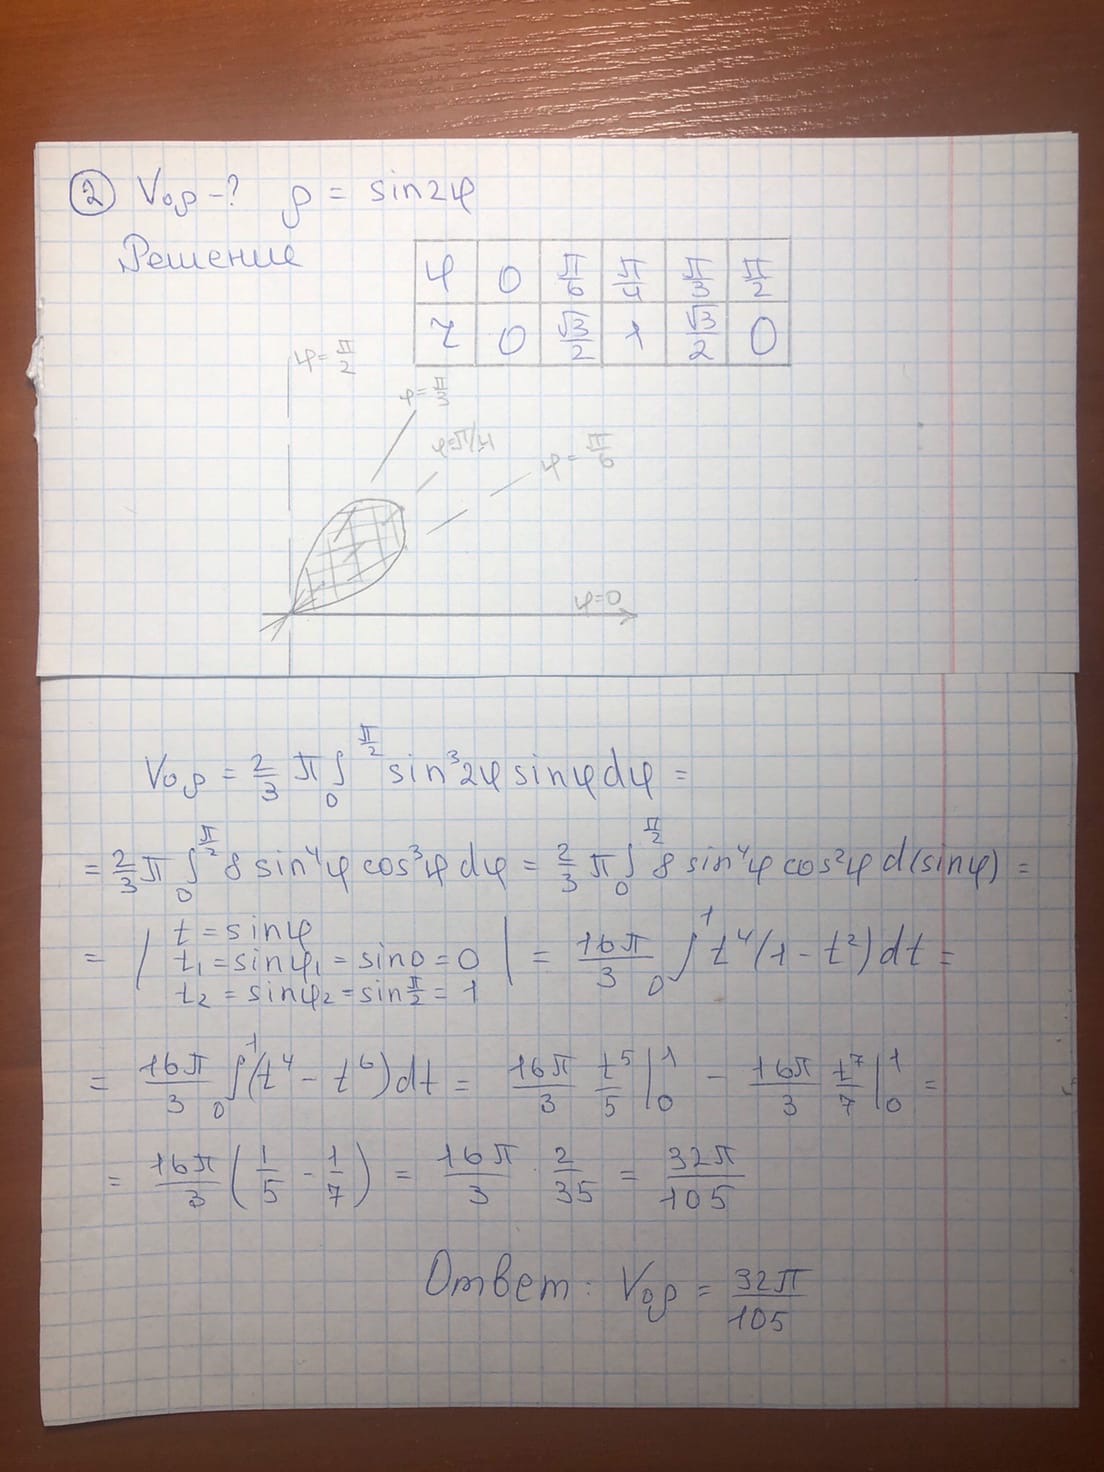 ② Vоρ-? ρ = sin2φ
Решение
φ 0 π/6 π/4 π/3 π/2
r 0 √3/2 1 √3/2 0
φ=π/2
φ=π/3
φ=π/4
φ=π/6
φ=0
Vоρ = 2/3 π ∫₀^(π/2) sin³2φ sinφ dφ =
= 2/3 π ∫₀^(π/2) 8 sin⁴φ cos³φ dφ = 2/3 π ∫₀^(π/2) 8 sin⁴φ cos²φ d(sinφ) =
= | t = sinφ
t₁ = sinφ₁ = sin0 = 0
t₂ = sinφ₂ = sin π/2 = 1 | = 16π/3 ∫₀¹ t⁴(1 - t²)dt =
= 16π/3 ∫₀¹ (t⁴ - t⁶)dt = 16π/3 t⁵/5 |₀¹ - 16π/3 t⁷/7 |₀¹ =
= 16π/3 (1/5 - 1/7) = 16π/3 · 2/35 = 32π/105
Ответ: Vоρ = 32π/105